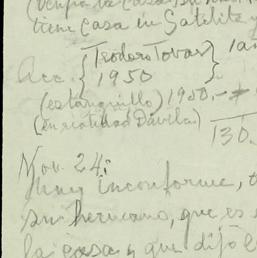 (venpia la casa, su
tiene casa en Satélite y
Acc. { Teodoro Tovar } 1a
1950
(estanquillo) 1950.-
(en realidad Dávila) 130.
Nov. 24:
muy inconforme, t
su hermano, que es
la casa y que dijo l